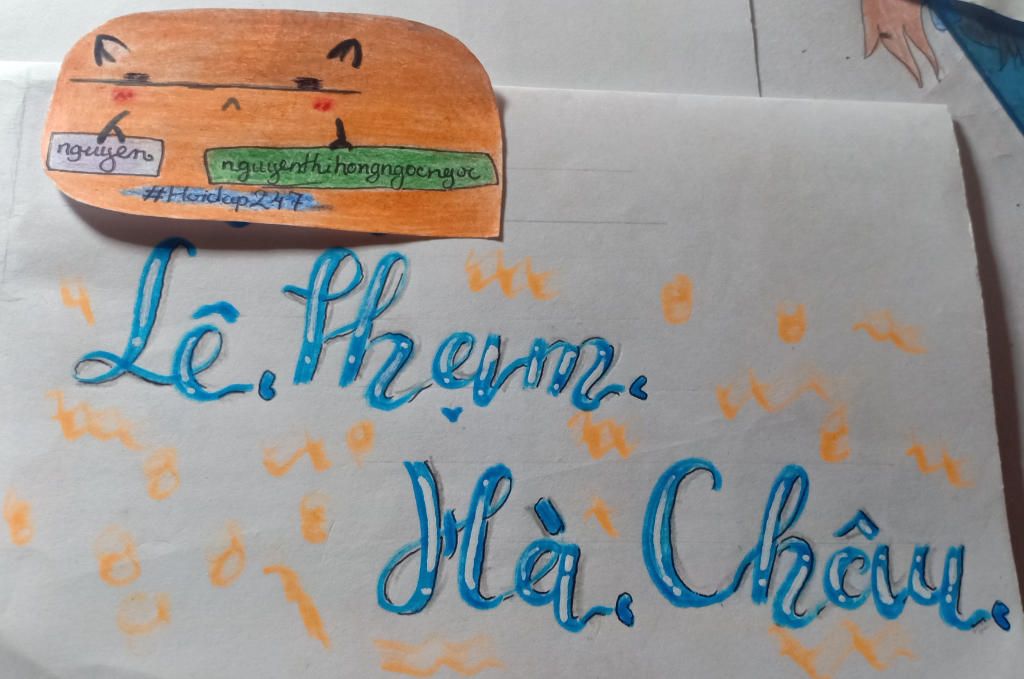 nguyen
nguyenthihongngocngoc
#Hoidap247
Lê. Phạm.
Hà. Châu.